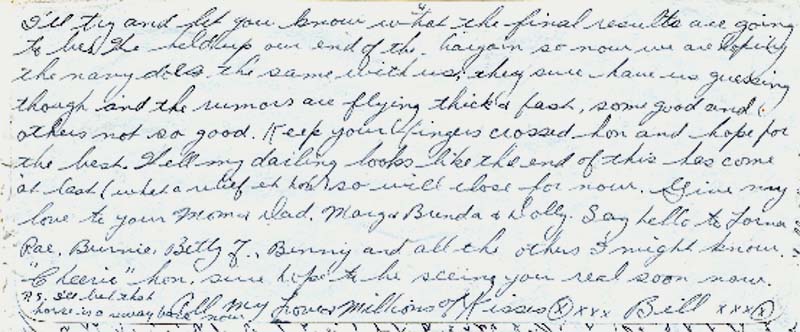 I'll try and let you know what the final results are going
to be. We held up our end of the bargain so now we are hoping
the navy does the same with us, they sure have us guessing
though and the rumors are flying thick & fast, some good and
others not so good. Keep your fingers crossed hon and hope for
the best. Well my darling looks like the end of this has come
at last (what a relief eh hon) so will close for now. Give my
love to your Mom & Dad, Marg & Brenda & Dolly. Say hello to Lorna
Rae, Burnie, Betty J., Benny and all the others I might know.
"Cheerie" hon, sure hope to be seeing you real soon now.
P.S. I'll bet that
horse is a swayback now.
All My Love & Millions of Kisses (x) xxx Bill xxx (x)